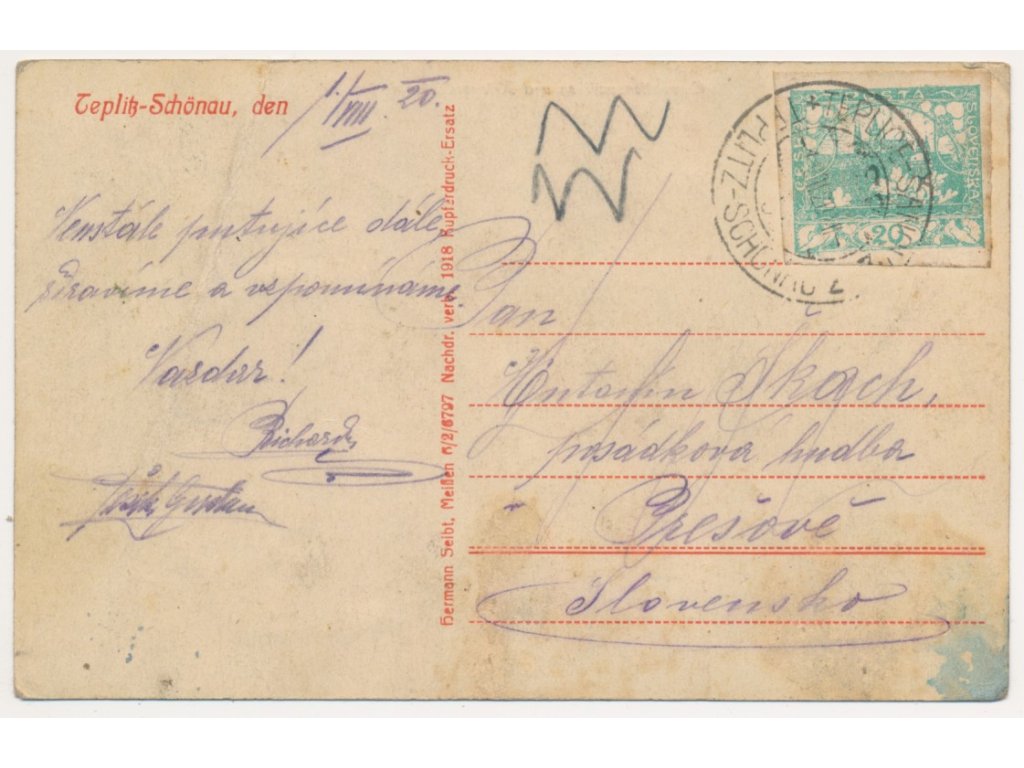 Teplitz-Schönau, den 1./VIII. 20.
Neustále putujíce dále,
zdravíme a vzpomínáme.
Nazdar!
Richard
Hermann Seibt, Meißen A/2/6797 Nachdr. verb. 1918 Kupferdruck-Ersatz
ČESKO-SLOVENSKA
20
TEPLITZ-SCHÖNAU 2
TEPLICE-ŠANOV
Pan
Antonín Skách,
posádková hudba
v Prešově
Slovensko